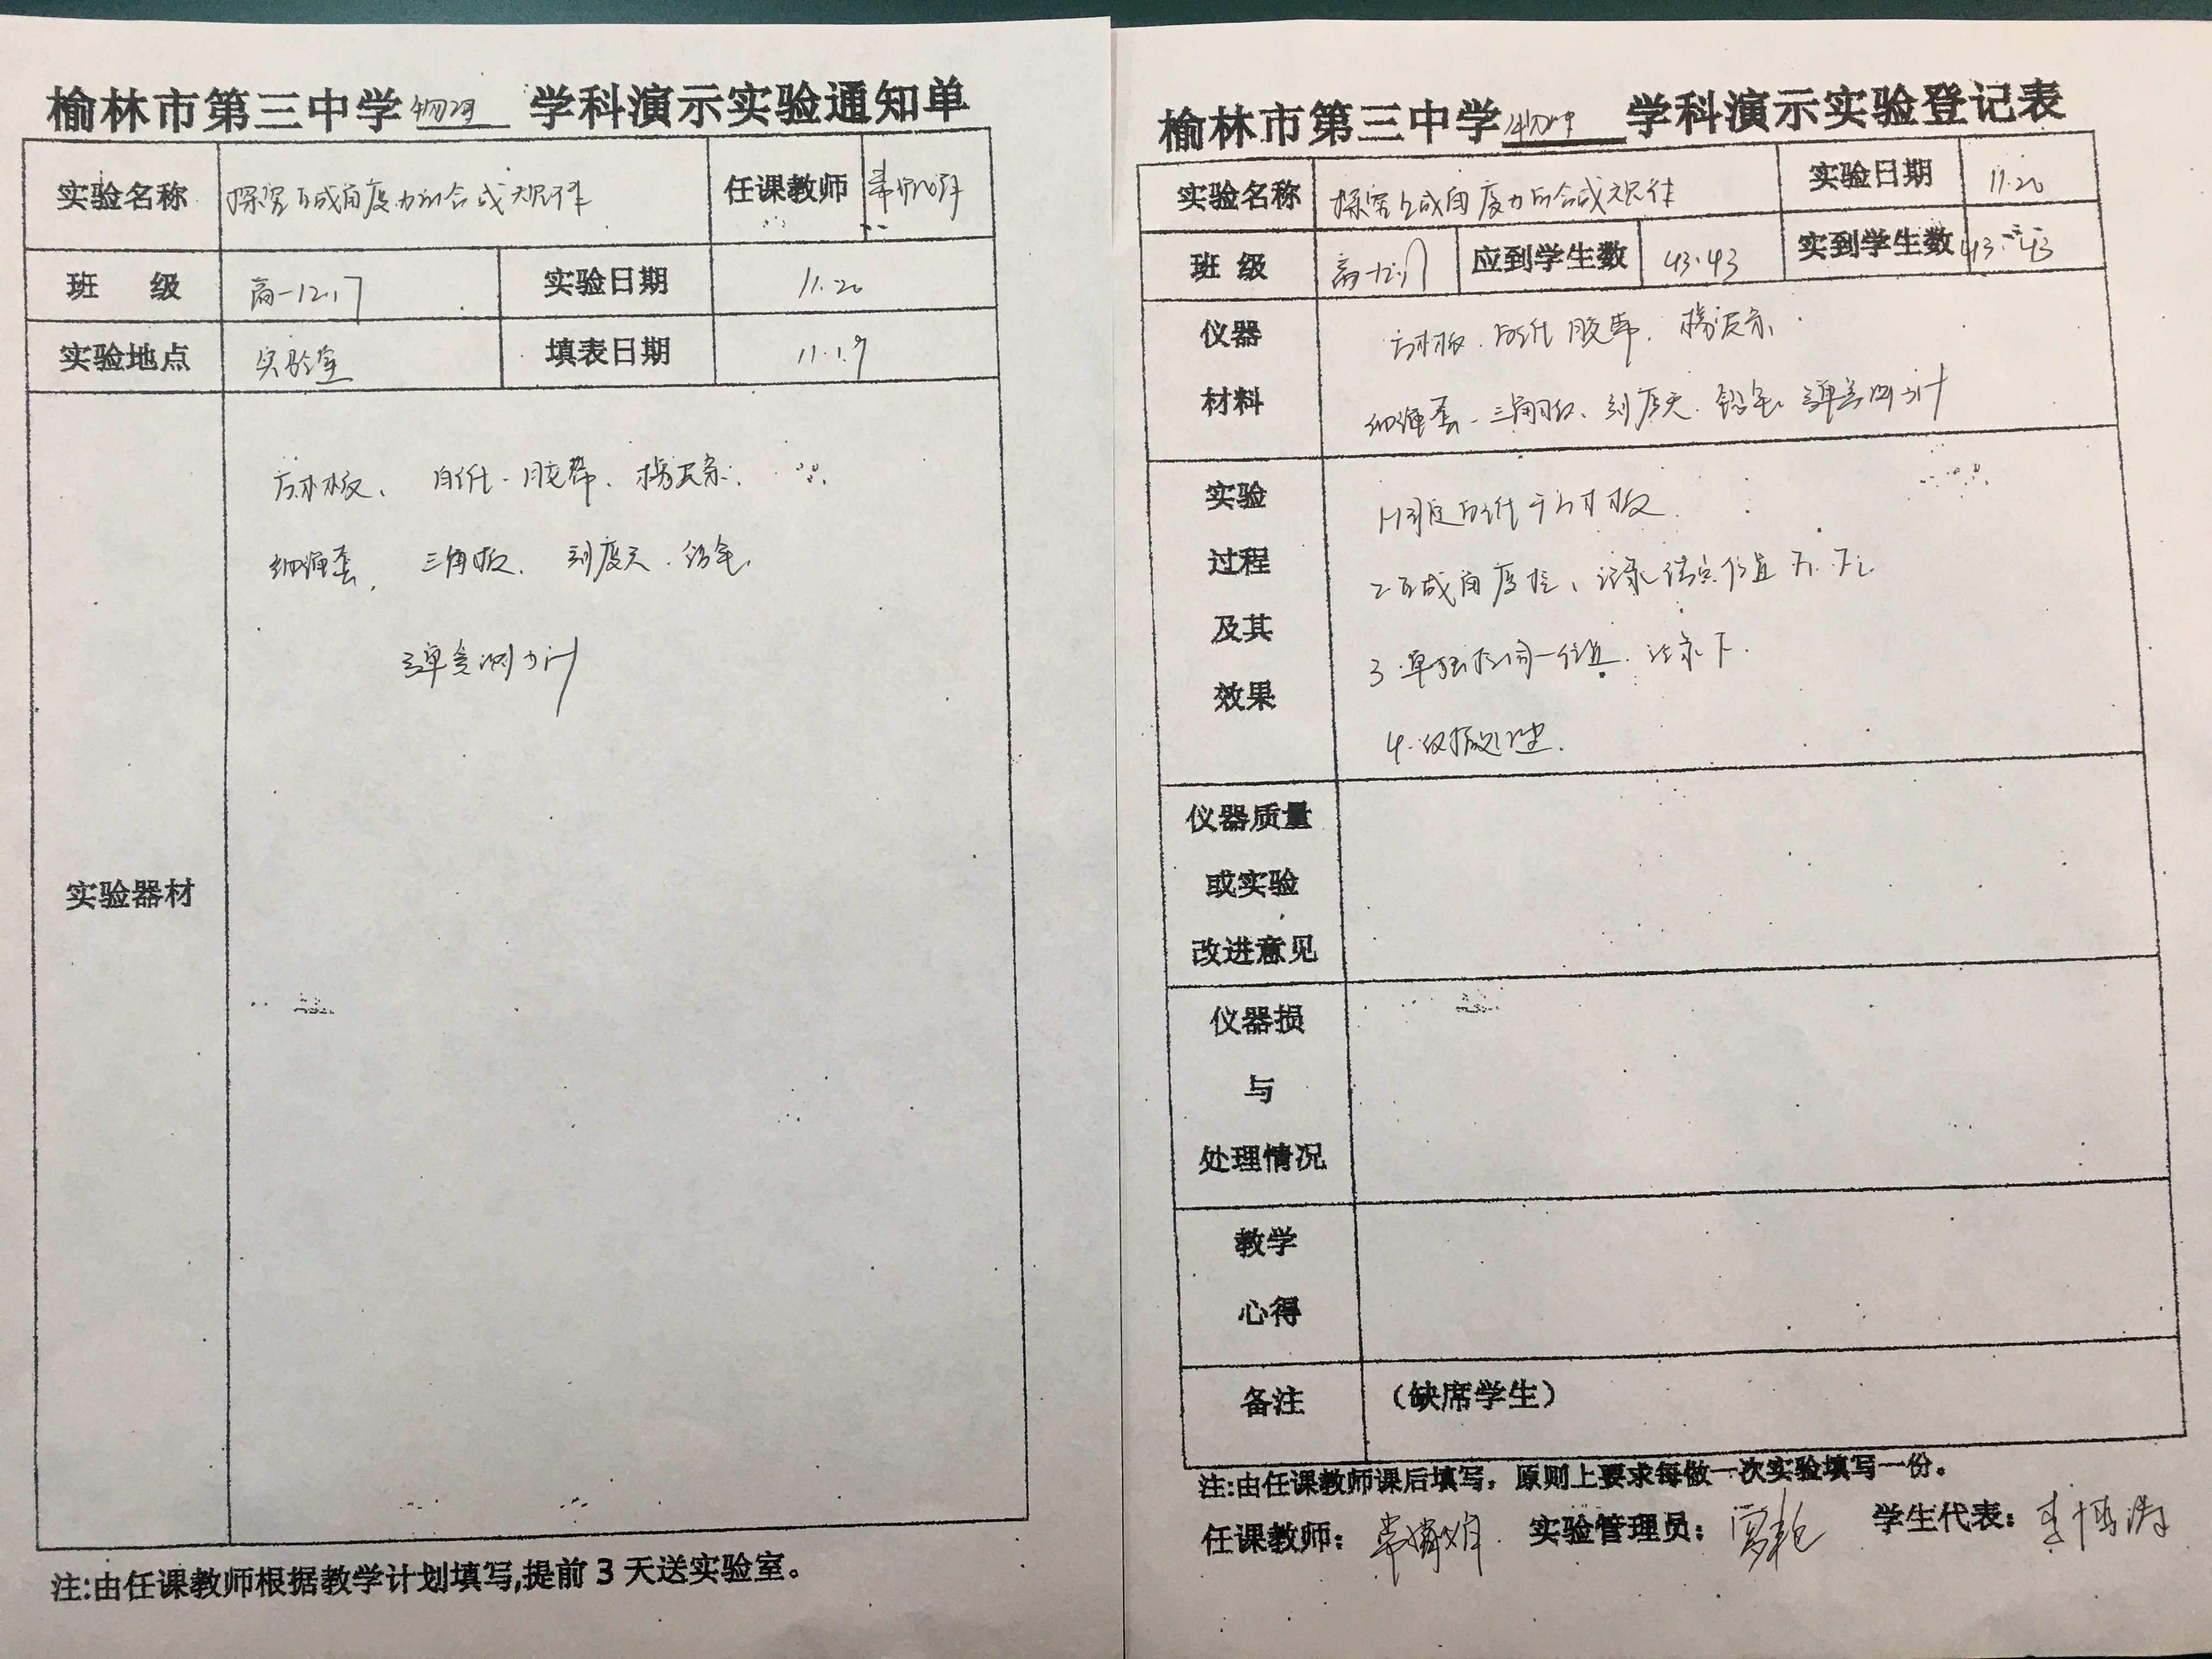 榆林市第三中学物理 学科演示实验通知单
实验名称 探究互成角度力的合成规律 任课教师
班 级 高一12.17 实验日期 11.20
实验地点 实验室 填表日期 11.19
方木板、白纸、胶带、橡皮条、
细绳套、三角板、刻度尺、铅笔、
弹簧测力计
实验器材
注:由任课教师根据教学计划填写,提前3天送实验室。
榆林市第三中学物理 学科演示实验登记表
实验名称 探究互成角度力的合成规律 实验日期 11.20
班 级 高一12.17 应到学生数 43.43 实到学生数 43.43
仪器 方木板、白纸、胶带、橡皮条、
材料 细绳套、三角板、刻度尺、铅笔、弹簧测力计
实验 1.固定白纸于方木板
过程 2.互成角度拉、记录结点位置 F1.F2
及其 3.单独拉同一位置.记录F.
效果 4.数据处理.
仪器质量
或实验
改进意见
仪器损
与
处理情况
教学
心得
备注 （缺席学生）
注:由任课教师课后填写，原则上要求每做一次实验填写一份。
任课教师： 实验管理员： 学生代表：